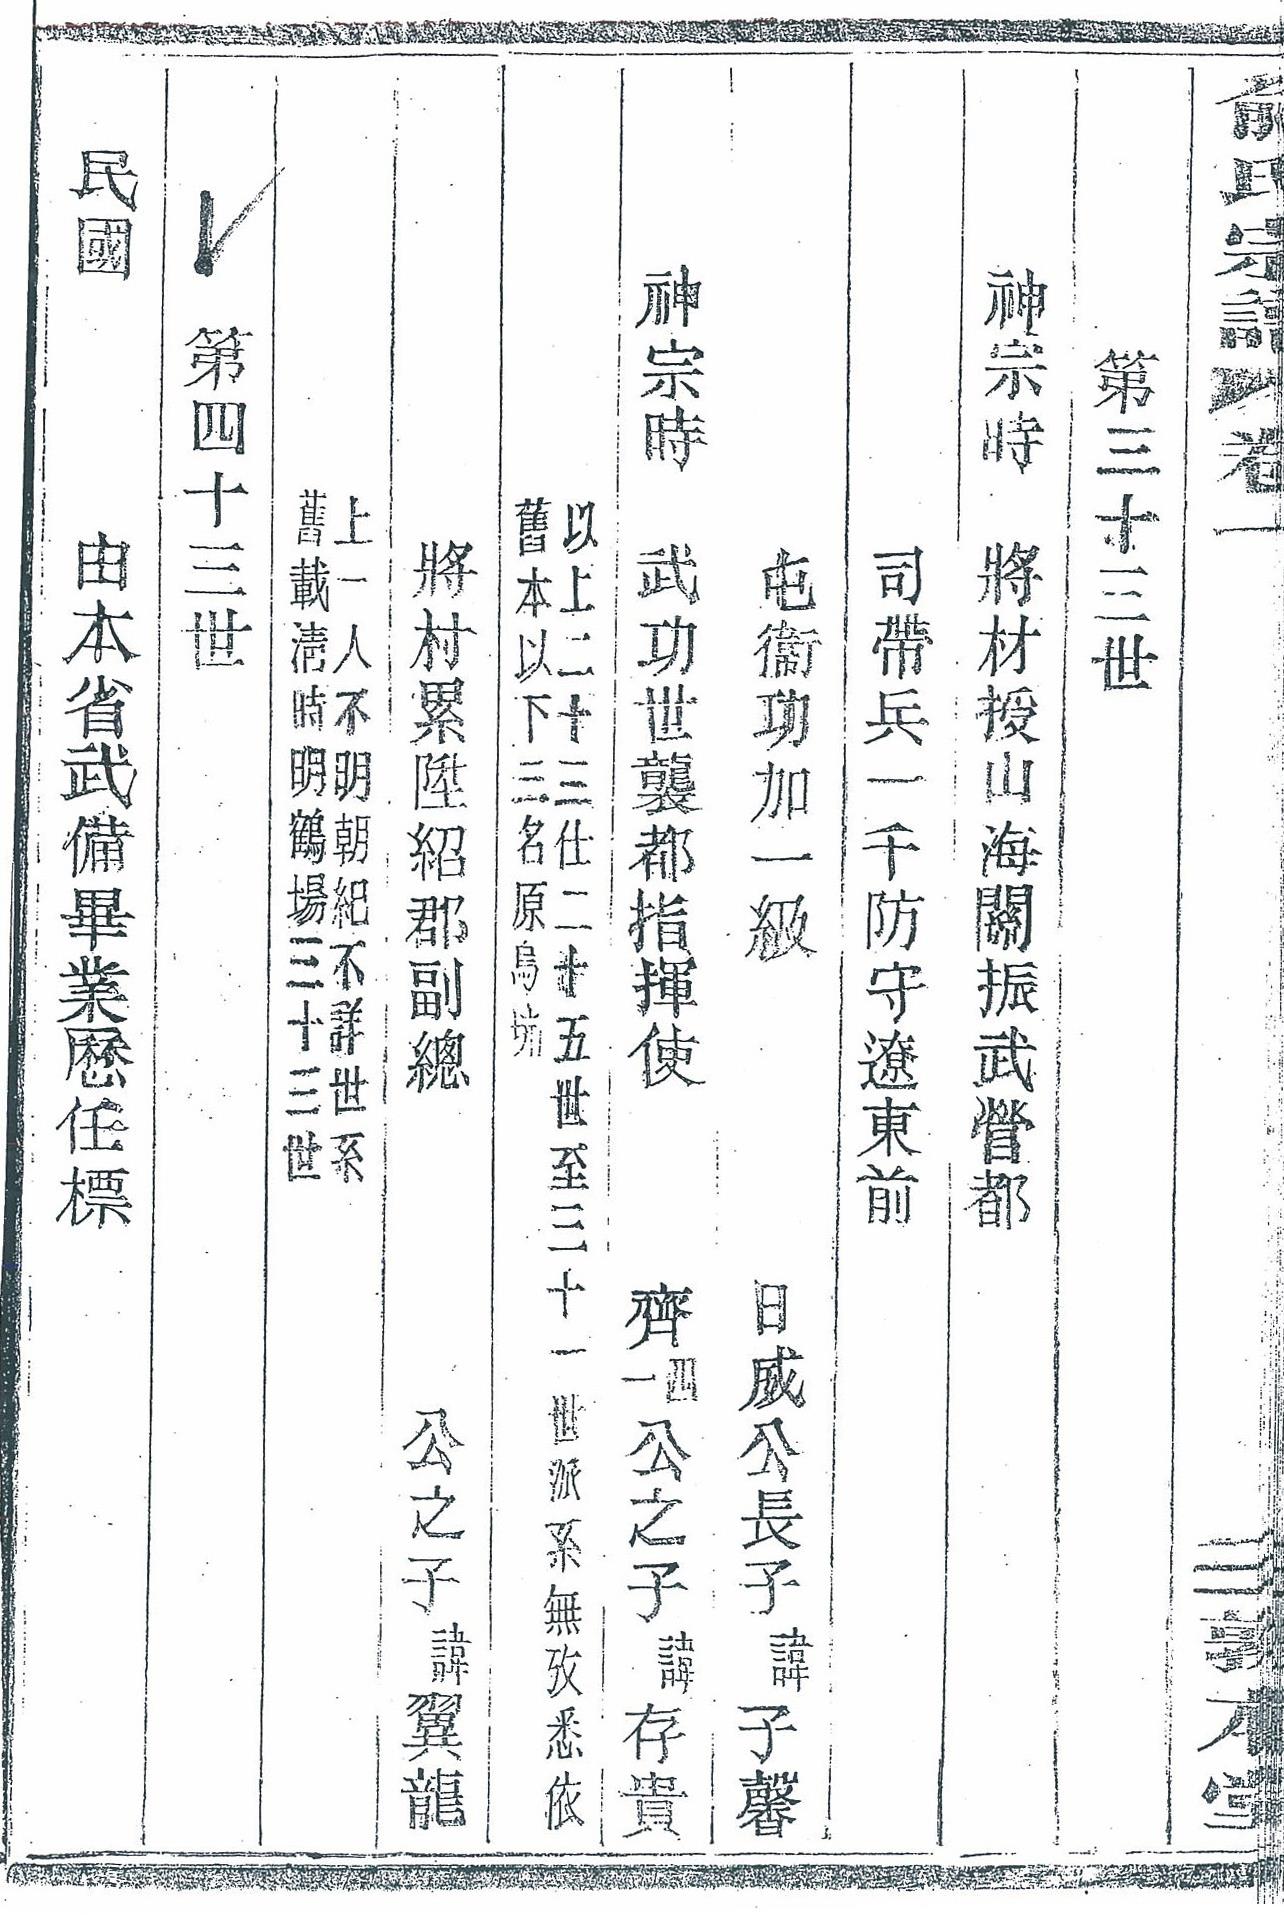 俞氏宗譜 卷一
第三十三世
神宗時 將材授山海關振武營都
司帶兵一千防守遼東前
屯衞功加一級 日威公長子 諱子馨
神宗時 武功世襲都指揮使 齊四一公之子 諱存貴
以上二十三仕二十五世至三十一世派系無攷悉依
舊本以下三名原
將材累陞紹郡副總 公之子 諱翼龍
上一人不明朝紀不詳世系
舊載清時明鶴場三十三世
第四十三世
民國 由本省武備畢業歷任標
三 敦本堂